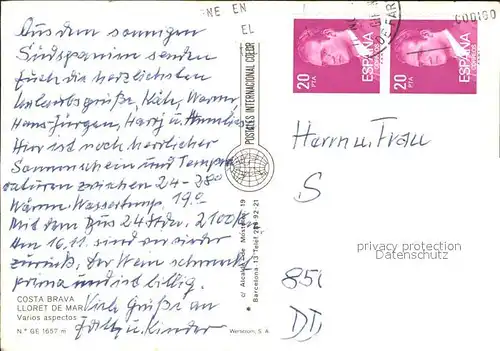 Aus dem sonnigen
Südspanien senden
Euch die herzlichsten
Urlaubsgrüße, Käte, Werner,
Hans-Jürgen,
Hier ist noch herrlicher
Sonnenschein und Tempe
raturen zwischen 24-28°
Wassertemp. 19°
Mit dem Bus 24 Stdr. 2100 km
Am 16.11. sind wir wieder
zurück. Der Wein schmeckt
prima und ist billig.
Viele Grüße an
u. Kinder
COSTA BRAVA
LLORET DE MAR
Varios aspectos
N.° GE 1657 m
Werstrom, S. A.
POSTALES INTERNACIONAL COLOR
Barcelona-13
NE EN
EL
20
PTA
ESPAÑA
CORREOS
20
PTA
ESPAÑA
CORREOS
Herrn u. Frau
S
privacy protection
Datenschutz
85
D